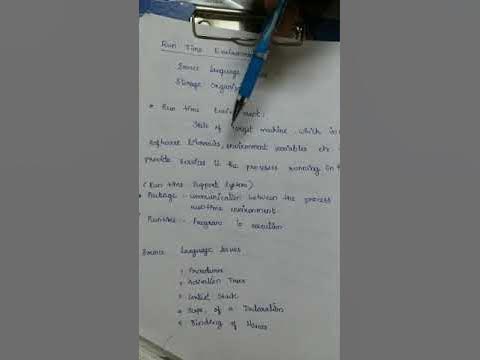 Run Time Environ
Source Language
Storage Organiz
* Run time Environment:
State of target machine which in
software libraries, environment variables etc
provide services to the processes running in t
(Run time Support System)
* Package - communication between the process
run-time environment
* Runtime - Program is execution
Source Language Issues
1. Procedures
2. Activation Trees
3. Control Stack
4. Scope of a Declaration
5. Binding of Names